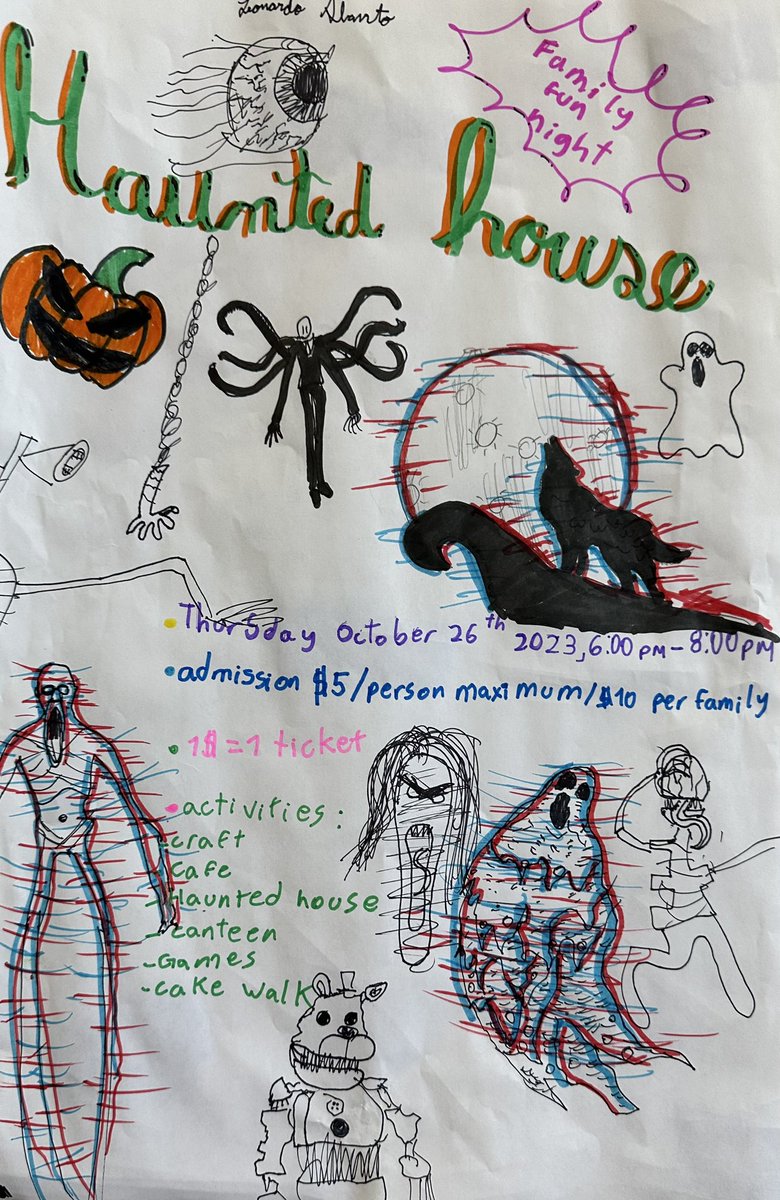 Leonardo Abanto
Family
fun
night
Haunted house
• Thursday October 26th 2023, 6:00 pm - 8:00 pm
• admission $5/person maximum/$10 per family
• 1$ = 1 ticket
• activities:
- craft
- cafe
- Haunted house
- canteen
- Games
- cake walk